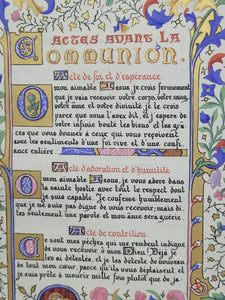 ACTES AVANT LA
COMMUNION.
Acte de foi et d'espérance.
O mon aimable Jésus, je crois fermement
que je vais recevoir votre corps, votre sang,
votre âme et votre divinité je le crois
parce que vous l'avez dit, et j'espère
de votre infinie bonté les biens et les grâ-
ces que vous donnez à ceux qui vous reçoivent
avec les sentiments d'une foi vive et d'une confi-
ance entière.
Acte d'adoration et d'humilité.
O mon aimable Jésus, je vous adore dans
la sainte hostie avec tout le respect dont
je suis capable. Je confesse humblement
que je ne suis pas digne de vous recevoir mais di-
tes seulement une parole et mon âme sera guérie.
Acte de contrition.
Ce sont mes péchés qui me rendent indigne
de vous recevoir ô mon Dieu! Déjà je
les ai détestés, et je les déteste de nouveau
de tout mon cœur, parce qu'ils vous déplaisent et
je suis prête à mourir mille fois plutôt que de ja